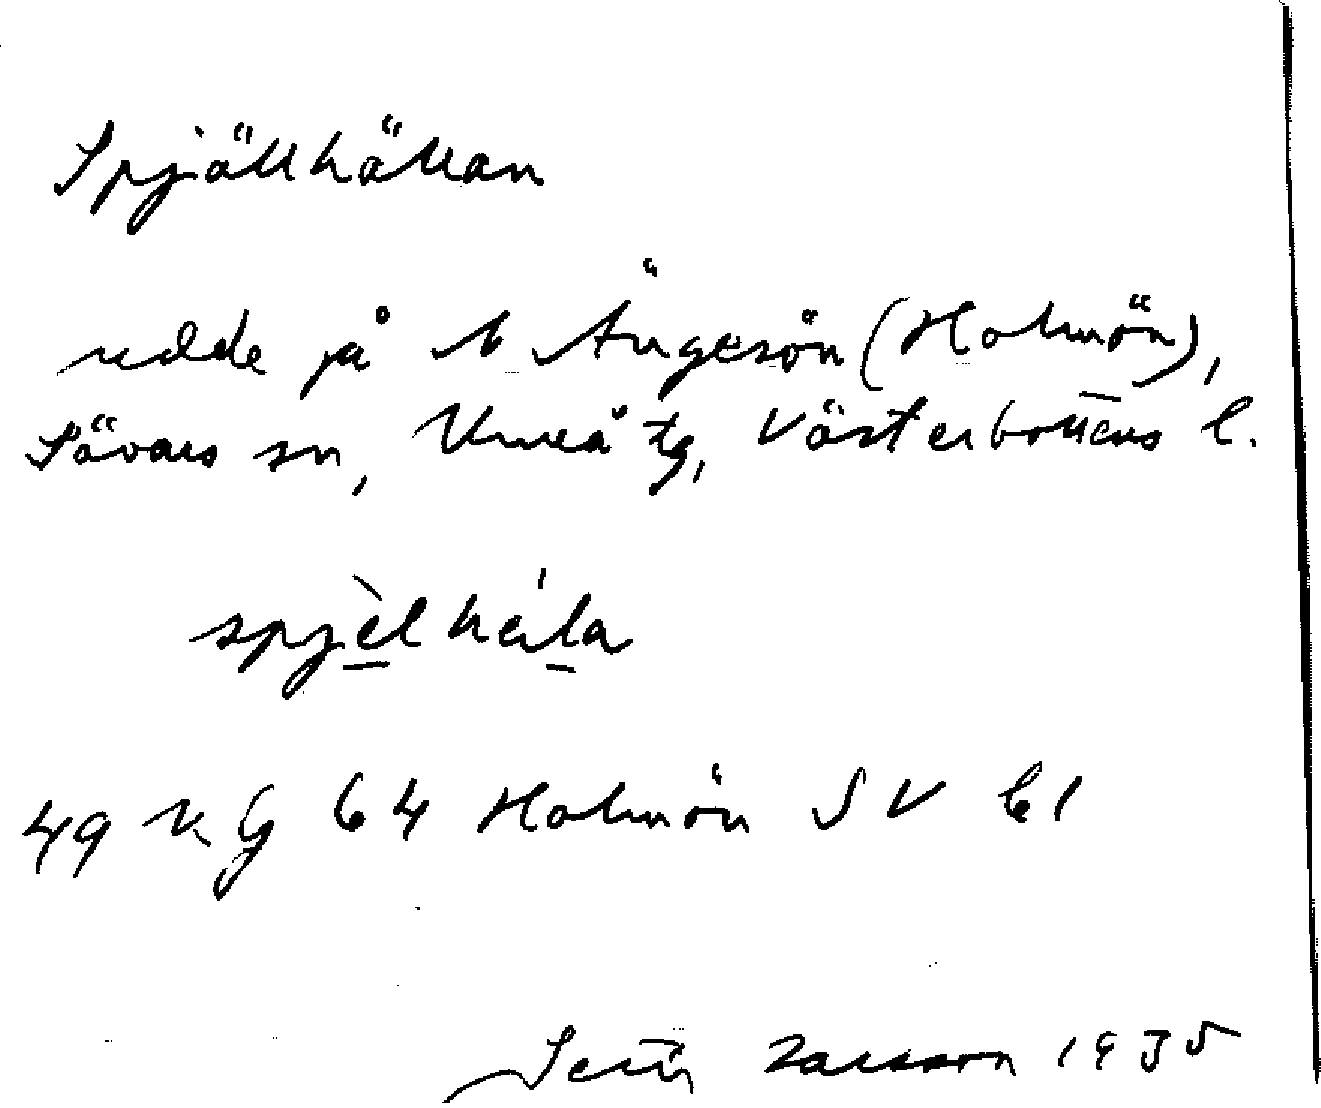 Spjällhällan
udde på N Ängesön (Holmön),
Sävars sn, Umeå tg, Västerbottens l.
spjèlhéla
49 K G 64 Holmön SV bl
Larsson 1935